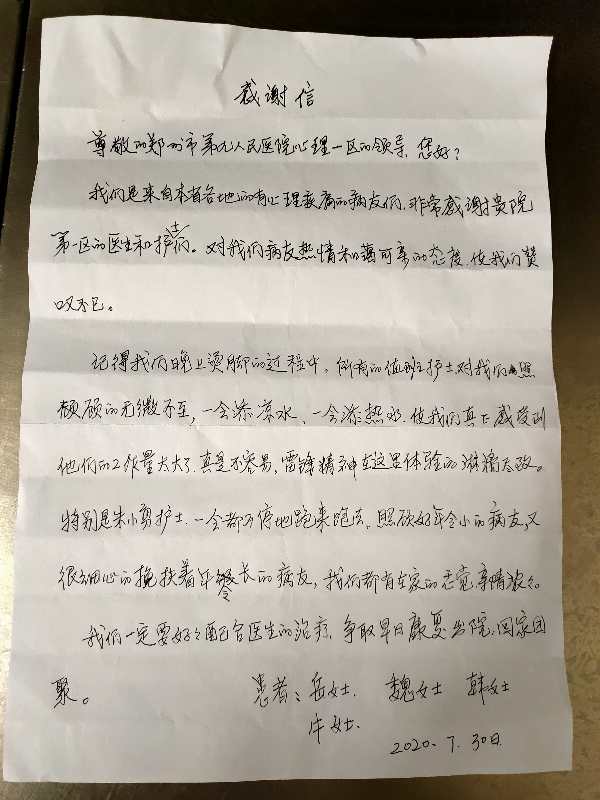 感谢信
尊敬的郑州市第九人民医院心理一区的领导，您好？
我们是来自本省各地的有心理疾病的病友们，非常感谢贵院
第一区的医生和护士们。对我们病友热情和蔼可亲的态度，使我们赞
叹不已。
记得我们晚上烫脚的过程中，所有的值班护士对我们照
顾的无微不至，一会添凉水，一会添热水，使我们真正感受到
他们的工作量太大了，真是不容易，雷锋精神在这里体验的淋漓尽致。
特别是朱小剪护士，一会都不停地跑来跑去。照顾好年令小的病友，又
很细心的搀扶着年令长的病友，我们都有在家的感觉，亲情浓浓。
我们一定要好好配合医生的治疗，争取早日康复出院，回家团
聚。
患者：岳女士 魏女士 韩女士
牛女士
2020.7.30日